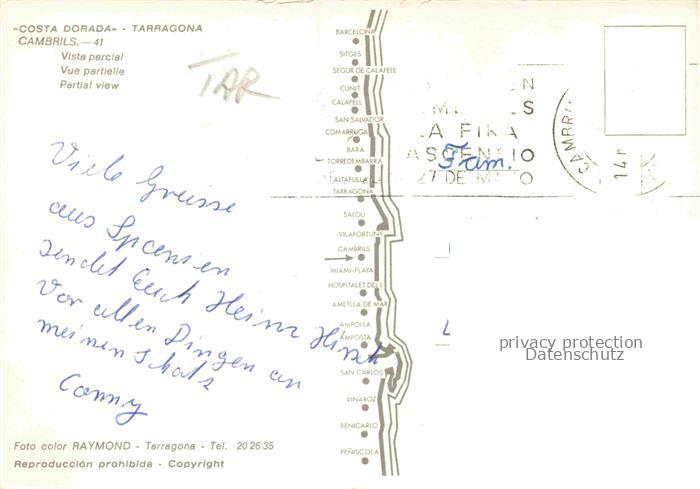 «COSTA DORADA» - TARRAGONA
CAMBRILS.—41
Vista parcial
Vue partielle
Partial view
TAR
Viele Grüsse
aus Spanien
sendet Euch Heinz Hirsch
Vor allen Dingen an
meinen Schatz
Conny
Foto color RAYMOND - Tarragona - Tel. 20 26 35
Reproducción prohibida - Copyright
BARCELONA
SITGES
SEGUR DE CALAFELL
CUNIT
CALAFELL
SAN SALVADOR
COMARRUGA
BARA
TORREDEMBARRA
ALTAFULLA
TARRAGONA
SALOU
VILAFORTUNY
CAMBRILS
MIAMI-PLAYA
HOSPITALET DEL I.
AMETLLA DE MAR
AMPOLLA
AMPOSTA
SAN CARLOS
VINAROZ
BENICARLO
PEÑISCOLA
LA FIRA
27 DE
CAMBR
14
Fam.
privacy protection
Datenschutz